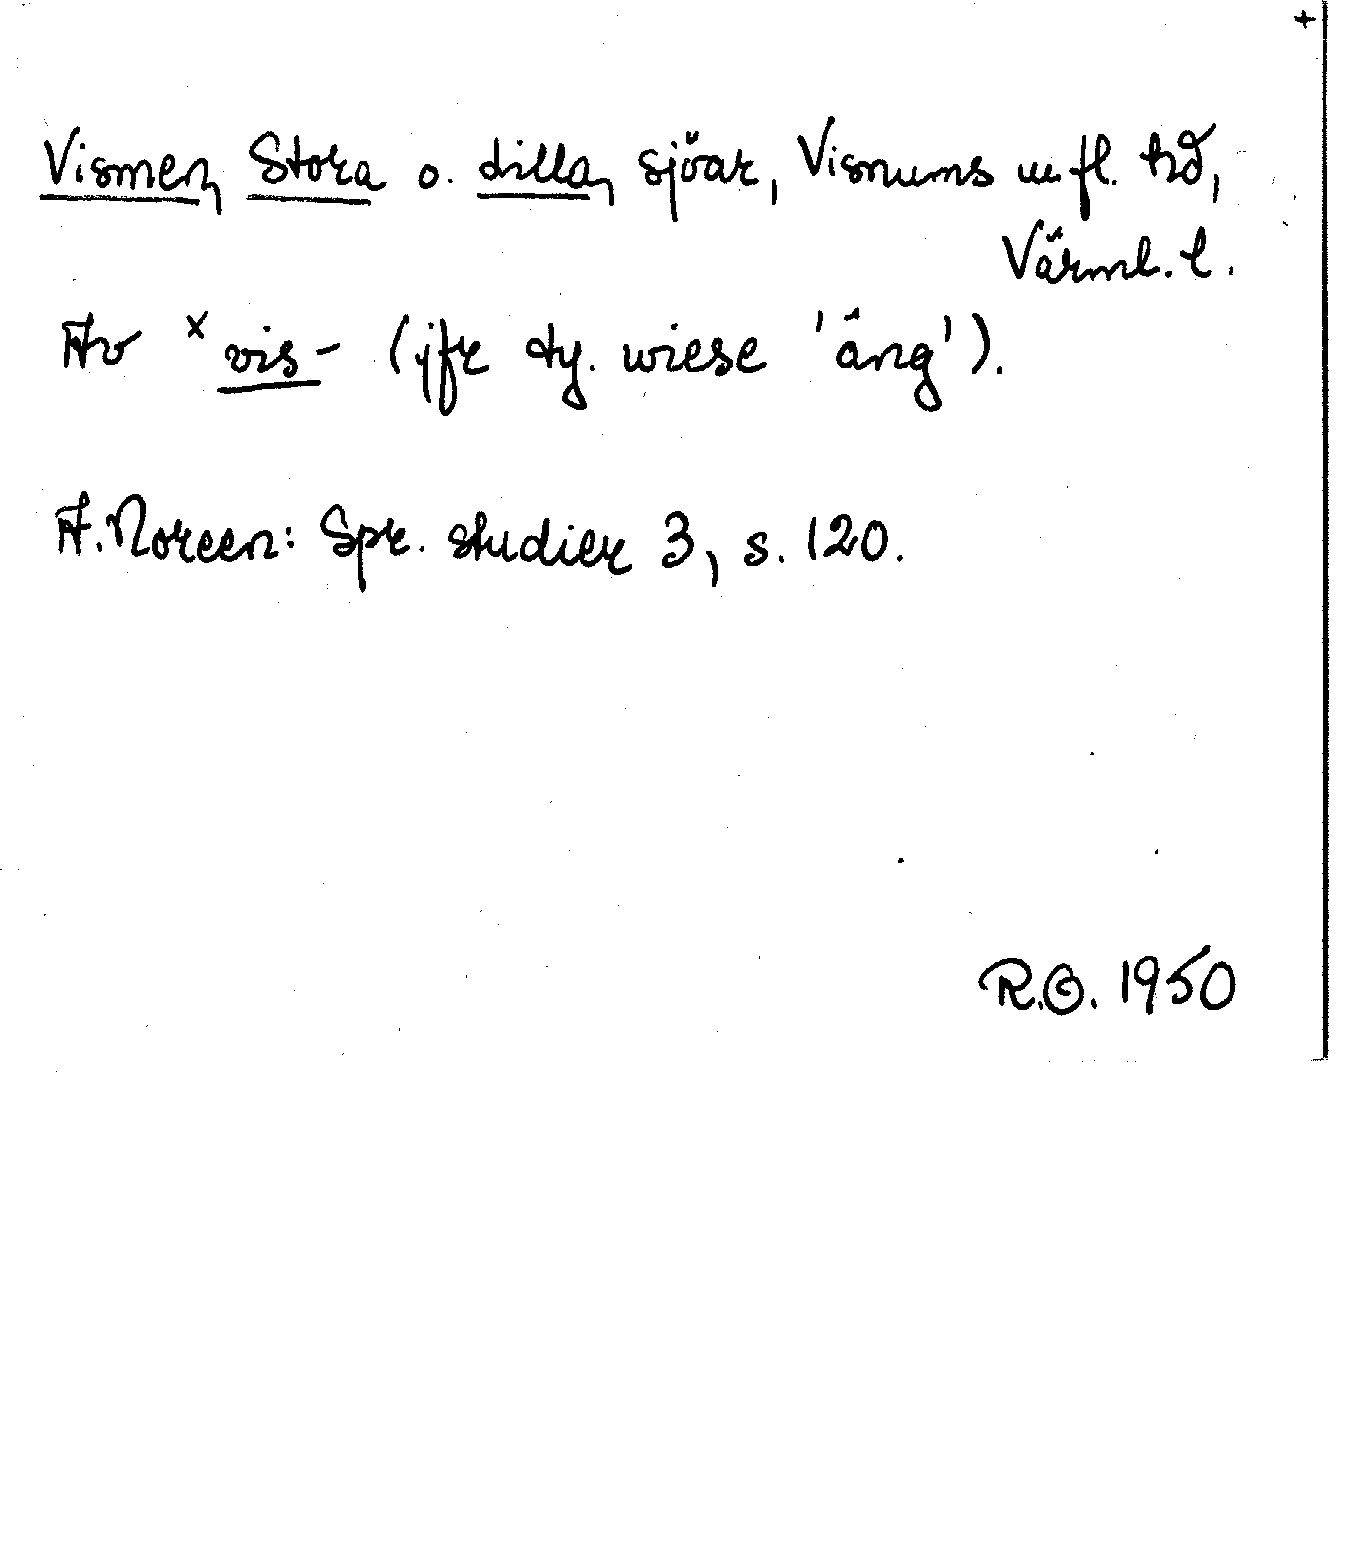 +
Vismen, Stora o. Lilla, sjöar, Visnums m.fl. hd,
Värml. l.
Av ˣvis- (jfr ty. wiese 'äng').
A. Noreen: Spr. studier 3, s. 120.
R.O. 1950